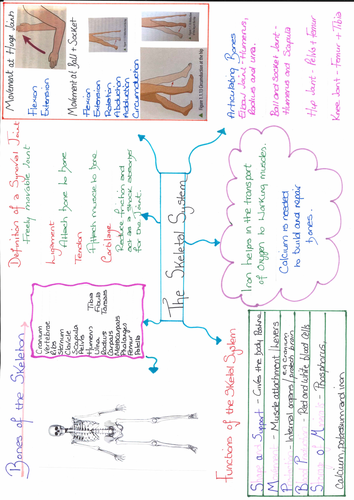 The Skeletal System
Bones of the Skeleton
Cranium
Vertebrae
Ribs
Sternum
Clavicle
Scapula
Pelvis
Humerus
Ulna
Radius
Carpals
Metacarpals
Phalanges
Femur
Patella
Tibia
Fibula
Tarsals
Definition of a Synovial Joint
Freely movable Joint
Ligament
Attach bone to bone
Tendon
Attach muscle to bone
Cartilage
Reduce friction and
act as a shock absorber
for the Joint.
Movement at Hinge Joint
Flexion
Extension
Movement at Ball + Socket
Flexion
Extension
Rotation
Abduction
Adduction
Circumduction
Articulating Bones
Elbow Joint - Humerus,
Radius and Ulna.
Ball and Socket Joint -
Humerus and Scapula
Hip Joint - Pelvis + Femur
Knee Joint - Femur + Tibia
Iron helps in the transport
of Oxygen to Working muscles.
Calcium is needed
to build and repair
bones.
Functions of the Skeletal System
Support - Gives the body Posture
Muscle attachment / Levers
Internal organs protects
Red and White blood Cells
Phosphorus,
Calcium, potassium and iron